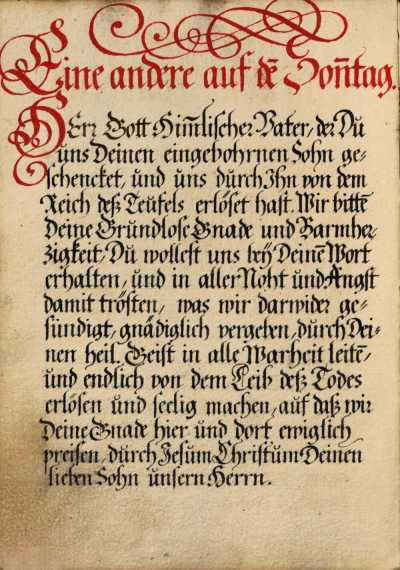 Eine andere auf dē Soñtag.
HErr Gott Him̄lischer Vater, der Du
uns Deinen eingebohrnen Sohn ge=
schencket, und uns dürch Ihn von dem
Reich deß Teüfels erlöset hast. Wir bittē
Deine Grundlose Gnade und Barmher=
zigkeit, Du wollest uns beÿ Deinē Wort
erhalten, und in aller Noht und Angst
damit trösten, was wir darwider ge=
sündigt, gnädiglich vergeben, dürch Dei=
nen heil. Geist in alle Warheit leitē,
und endlich von dem Leib deß Todes
erlösen und seelig machen, auf daß wir
Deine Gnade hier und dort ewiglich
preisen, dürch Jesum Christum Deinen
lieben Sohn unsern Herrn.